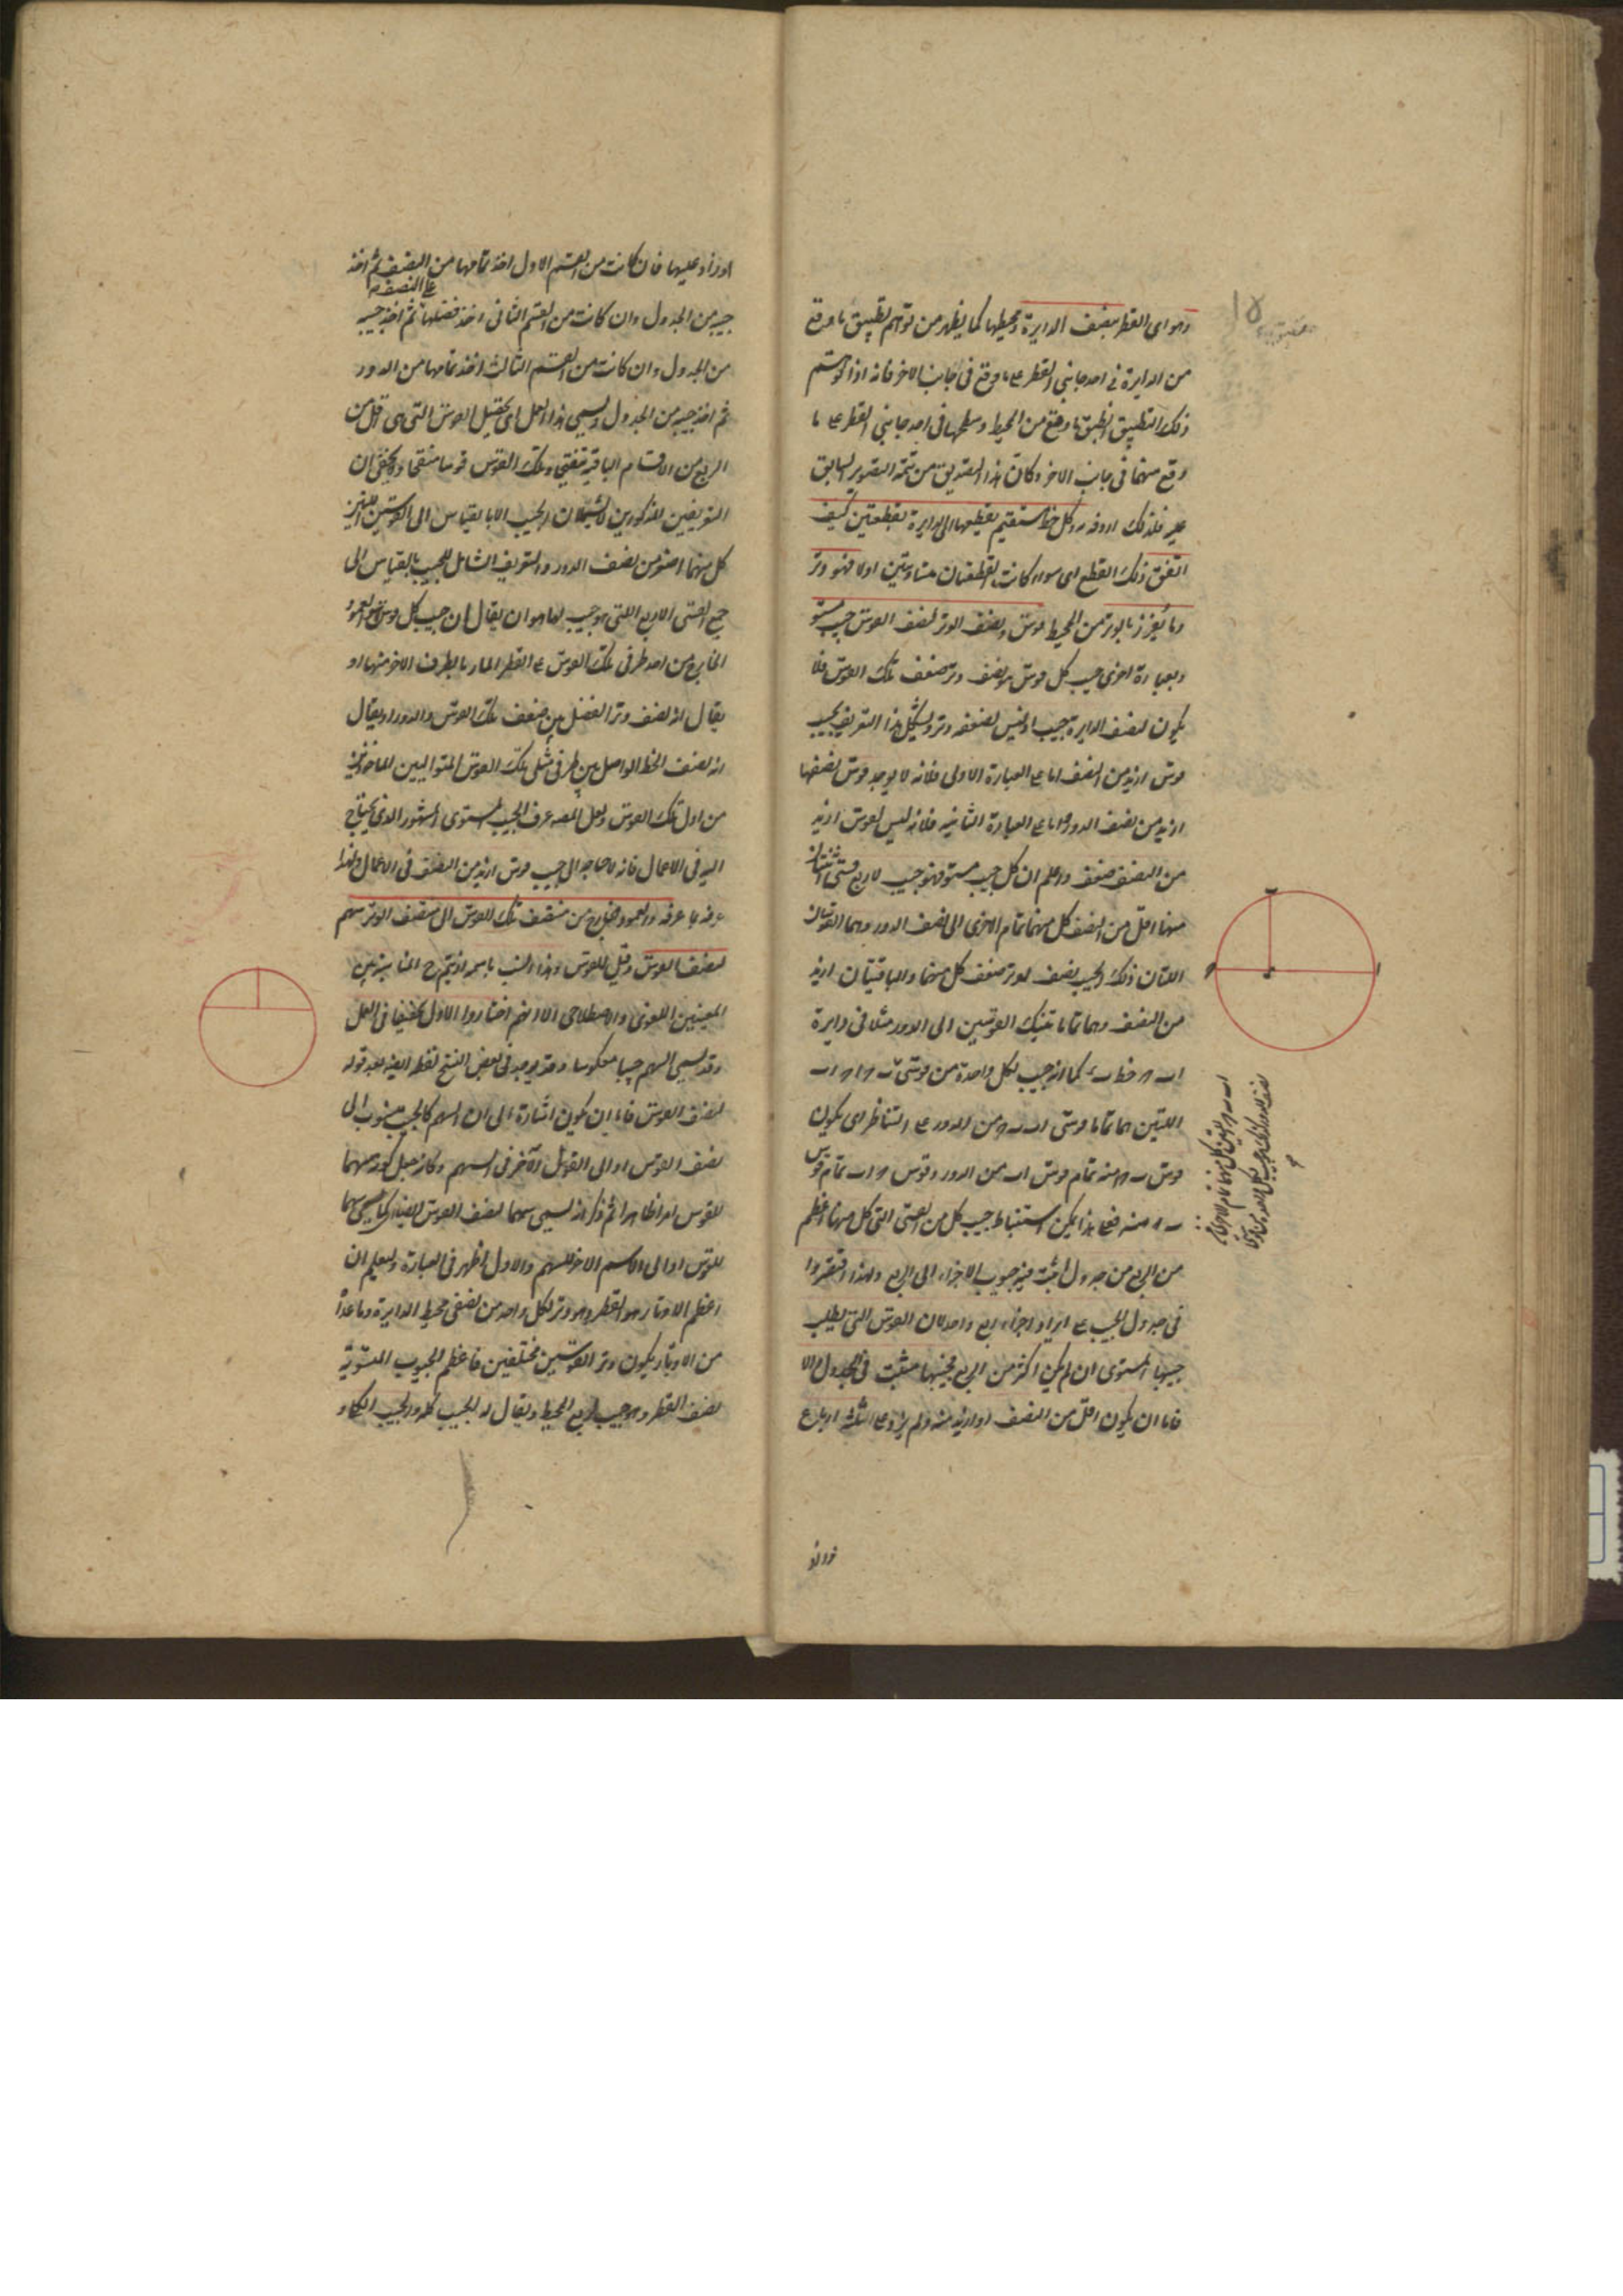 وهو اى القطر ينصف الدايرة ومحيطها كما يظهر من توهم تطبيق ما وقع
من الدايرة فى احد جانبى القطر على ما وقع فى جانب الاخر فانه اذا توهم
ذلك التطبيق انطبق ما وقع من المحيط وسطحها فى احد جانبى القطر على ما
وقع منهما فى جانب الاخر وكان هذا التصديق من تتمة التصوير السابق
فلذلك اردفه به وكل خط مستقيم يقطعها اى الدايرة بقطعتين كيف
اتفق ذلك القطع اى سواء كانت القطعتان متساويتين اولا فهو وتر
وما يفرز بالوتر من المحيط قوس ونصف الوتر لنصف القوس جيب مستو
وبعبارة اخرى جيب كل قوس هو نصف وتر ضعف تلك القوس فلا
يكون لنصف الدايرة جيب اذ ليس لضعفه وتر ويشكل هذا التعريف بجيب
قوس ازيد من النصف اما على العبارة الاولى فلانه لا يوجد قوس نصفها
ازيد من نصف الدور واما على العبارة الثانية فلانه ليس لقوس ازيد
من النصف ضعف واعلم ان كل جيب مستو فهو جيب لاربع قسى اثنتان
منها اقل من النصف كل منهما تمام الاخرى الى نصف الدور وهما القوسان
اللتان ذلك الجيب نصف لوتر ضعف كل منهما والباقيتان ازيد
من النصف وهما تماما تينك القوسين الى الدور مثلا فى دايرة
كما انه جيب لكل واحدة من قوسى
اللتين هما تماما قوسى من الدور على التناظر اى يكون
قوس منه تمام قوس من الدور وقوس تمام قوس
منه فعلى هذا يمكن استنباط جيب كل من القسى التى كل منها اعظم
من الربع من جدول اثبت فيه جيوب الاجزاء الى الربع ولهذا اقتصروا
فى جدول الجيب على ايراد اجزاء ربع واحد لان القوس التى يطلب
جيبها المستوى ان لم يكن اكثر من الربع فجيبها مثبت فى الجدول والا
فاما ان يكون اقل من النصف او ازيد منه ولم يزد على الثلثة ارباع
اوزاد
اوزاد عليها فان كانت من القسم الاول اخذ تمامها من النصف ثم اخذ
على النصف
جيبه من الجدول وان كانت من القسم الثانى اخذ فضلها ثم اخذ جيبه
من الجدول وان كانت من القسم الثالث اخذ تمامها من الدور
ثم اخذ جيبه من الجدول ويسمى هذا العمل اى تحصيل القوس التى هى اقل من
الربع من الاقسام الباقية تنقيحا وتلك القوس قوسا منقحا ولا يخفى ان
التعريفين المذكورين لا يشملان الجيب الا بالقياس الى القوسين اللتين
كل منهما اصغر من نصف الدور والتعريف الشامل للجيب بالقياس الى
جميع القسى الاربع التى هو جيب لها هو ان يقال ان جيب كل قوس هو العمود
الخارج من احد طرفى تلك القوس على القطر المار بالطرف الاخر منها او
يقال انه نصف وتر الفضل بين ضعف تلك القوس والدور او يقال
انه نصف الخط الواصل بين طرفى مثلى تلك القوس المتواليين الماخوذين
من اول تلك القوس ولعل المصنف عرف الجيب المستوى المشهور الذى يحتاج
اليه فى الاعمال فانه لا حاجة الى جيب قوس ازيد من النصف فى الاعمال ولهذا
عرفه بما عرفه والعمود الخارج من منتصف تلك القوس الى منتصف الوتر سهم
لنصف القوس وقيل للقوس وهذا انسب باسمه اذ يتم ح المناسبة بين
المعنيين اللغوى والاصطلاحى الا انهم اختاروا الاول تخفيفا فى العمل
وقد يسمى السهم جيبا معكوسا وقد يوجد فى بعض النسخ لفظ ايضا بعد قوله
لنصف القوس فاما ان يكون اشارة الى ان السهم كالجيب منسوب الى
نصف القوس او الى القول الآخر فى السهم وكانه جعل كونه سهما
للقوس امرا ظاهرا ثم ذكر انه يسمى سهما لنصف القوس ايضا كما يسمى سهما
للقوس او الى الاسم الاخر للسهم والاول اظهر فى العبارة وليعلم ان
اعظم الاوتار هو القطر وهو وتر لكل واحد من نصفى محيط الدايرة وما عداه
من الاوتار يكون وتر القوسين مختلفين فاعظم الجيوب المستوية
نصف القطر وهو جيب لربع المحيط ويقال له الجيب كله والجيب